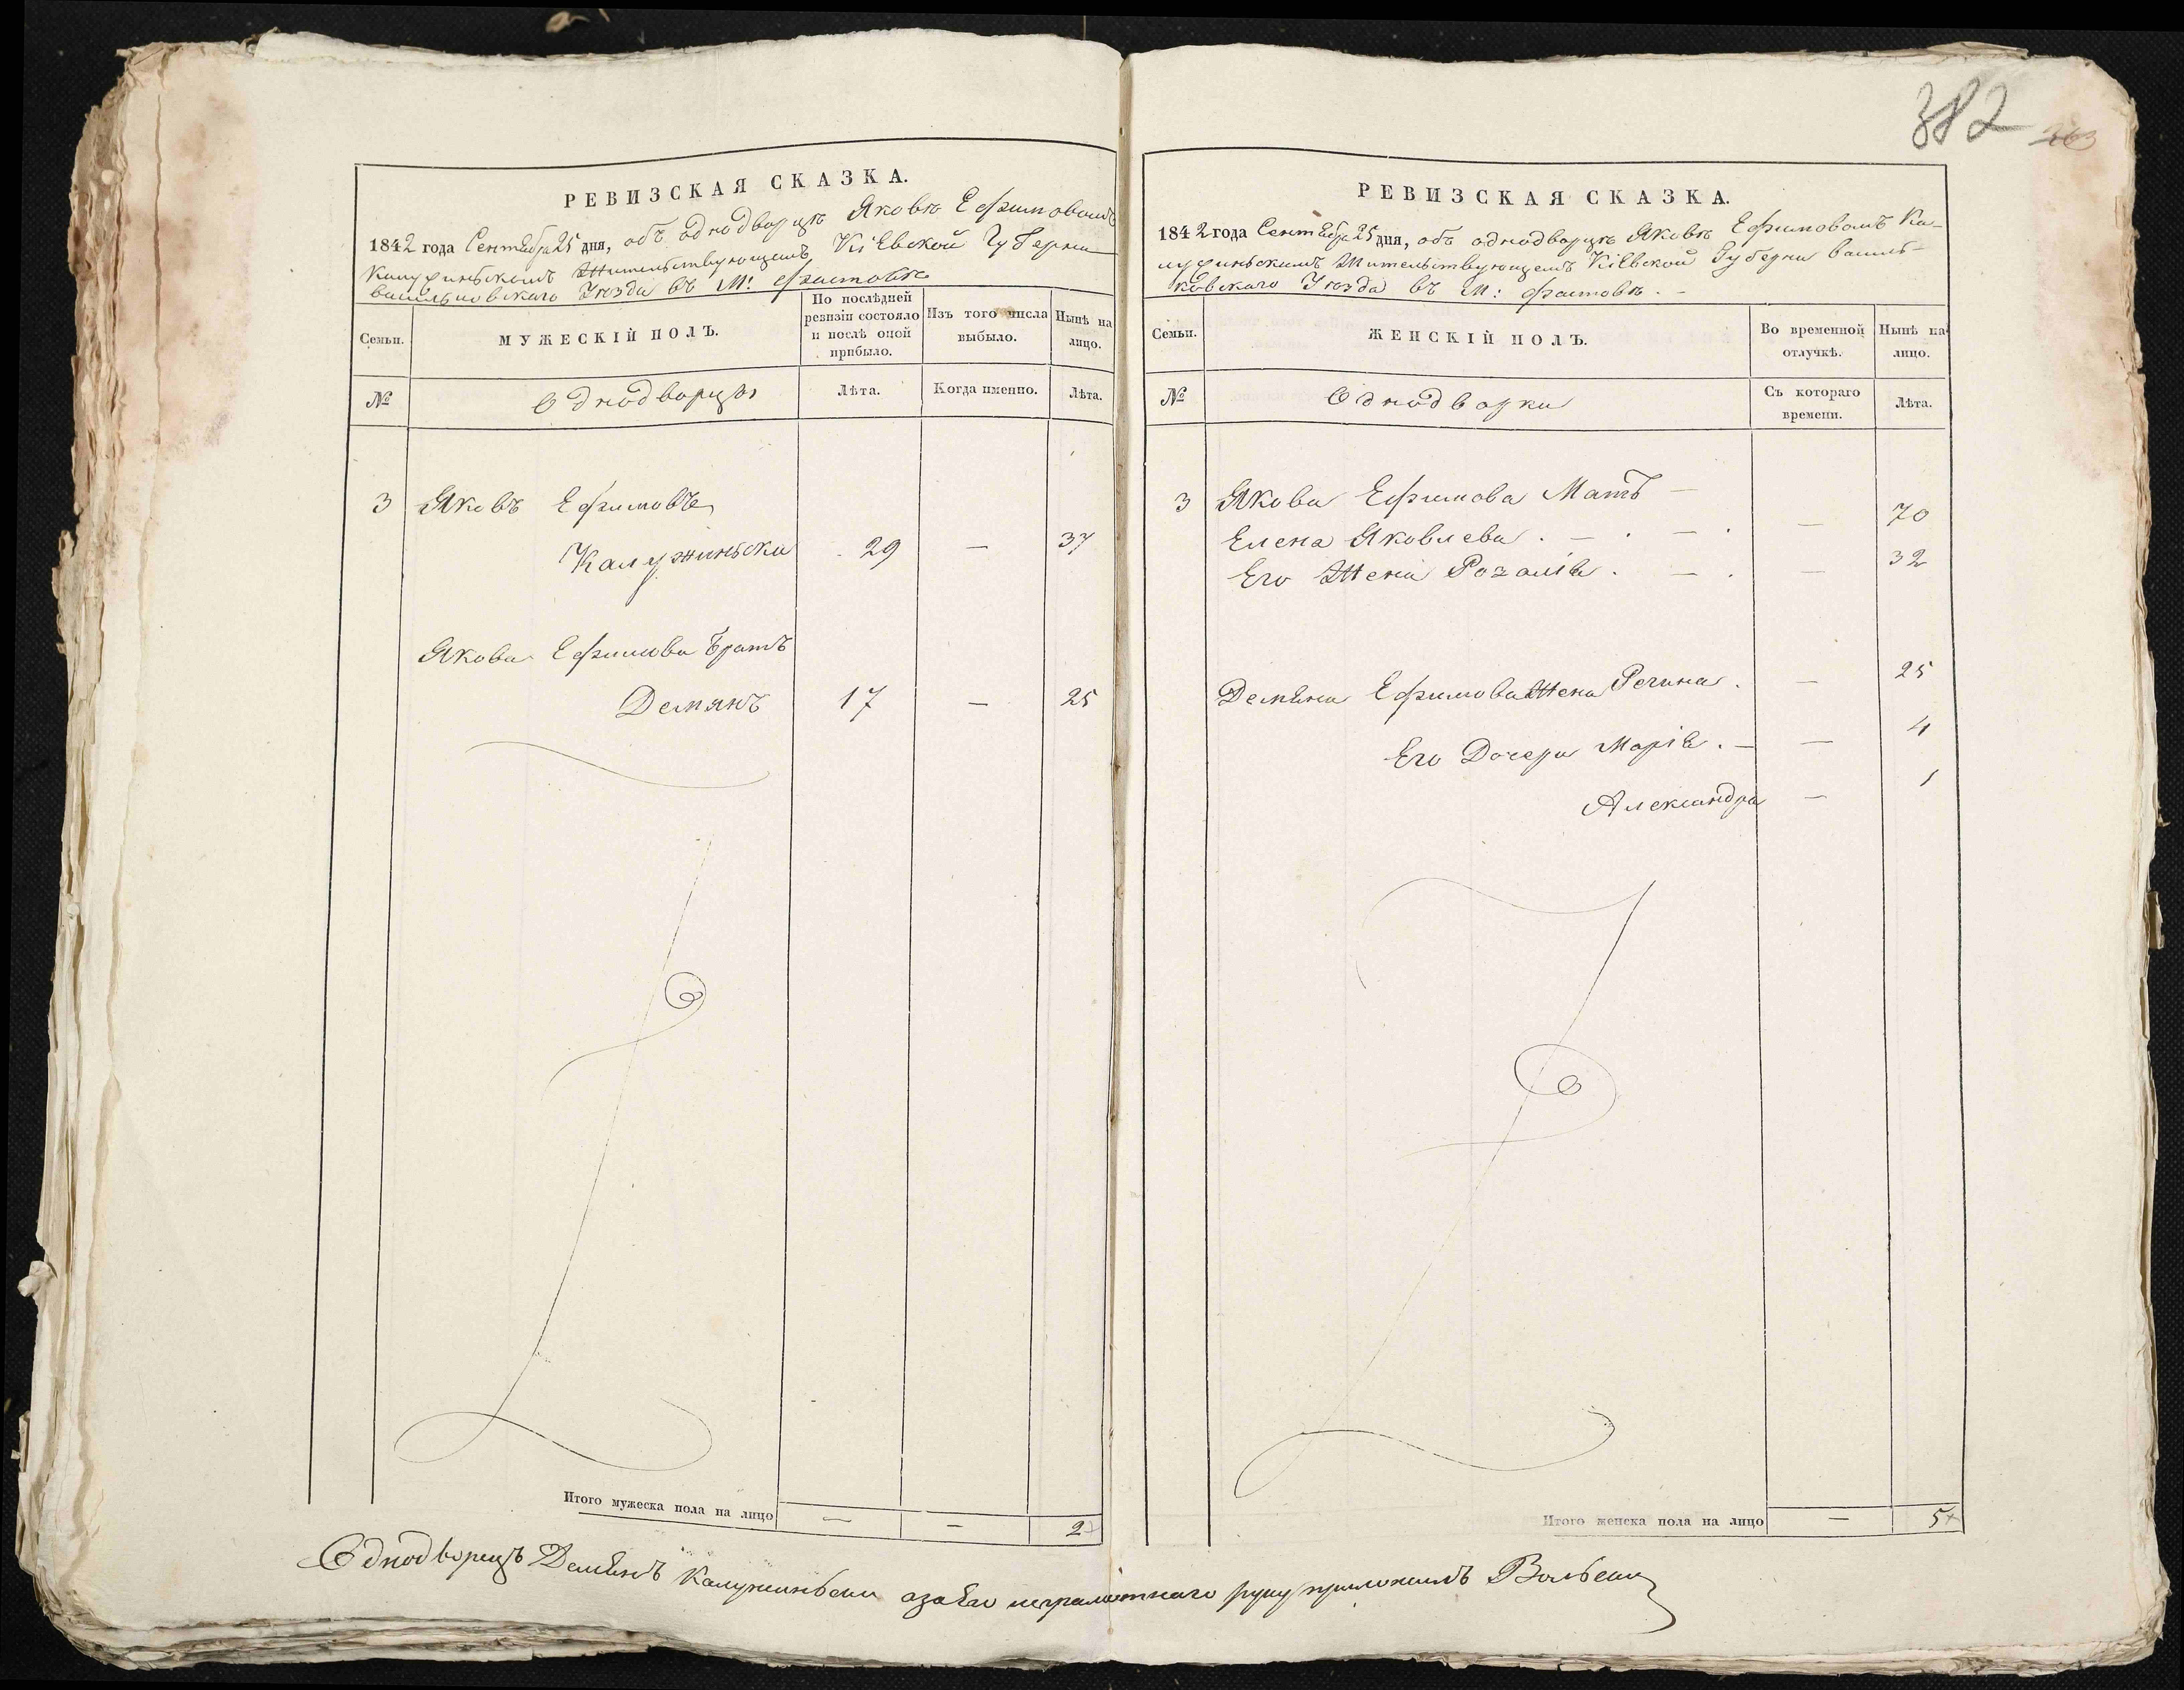 382 363
РЕВИЗСКАЯ СКАЗКА.
1842 года Сентября 25 дня, объ однодворцѣ Яковѣ Ефимовомъ
Жительствующемъ Кіевской Губерни
Васильковскаго Уѣзда въ М: Фастовѣ
Семьи.
МУЖЕСКІЙ ПОЛЪ.
По послѣдней ревизіи состояло и послѣ оной прибыло.
Изъ того числа выбыло.
Нынѣ на лицо.
№
Однодворцы
Лѣта.
Когда именно.
Лѣта.
3 Яковъ Ефимовъ
Калужиньски 29 — 37
Якова Ефимова Братъ
Демянъ 17 — 25
Итого мужеска пола на лицо — — 2
РЕВИЗСКАЯ СКАЗКА.
1842 года Сентября 25 дня, объ однодворцѣ Яковѣ Ефимовомъ Ка-
Жительствующемъ Кіевской Губерни Василь-
ковскаго Уѣзда въ М: Фастовѣ. —
Семьи.
ЖЕНСКІЙ ПОЛЪ.
Во временной отлучкѣ.
Нынѣ на лицо.
№
Однодворки
Съ котораго времени.
Лѣта.
3 Якова Ефимова Мать —
Елена Яковлева . — . — . — 70
Его Жена Розалія . — . — 32
Демяна Ефимова Жена Регина . — 25
Его Дочери Марія . — — 4
Александра — 1
Итого женска пола на лицо — 5
Однодворецъ Демянъ Калужиньски азаего неграмотнаго руку приложилъ